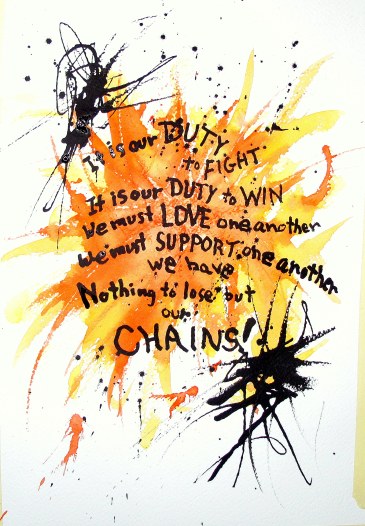 It is our DUTY
to FIGHT
It is our DUTY to WIN
We must LOVE one another
We must SUPPORT one another
we have
Nothing to lose but
our
CHAINS!